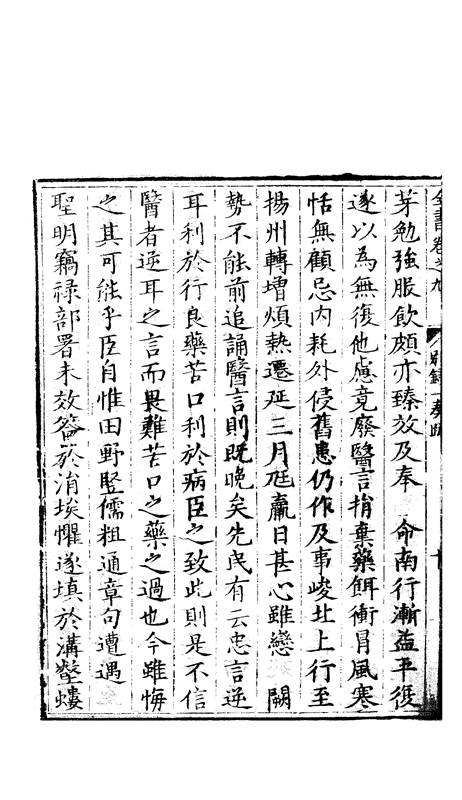 全書卷之九 別錄一奏疏 十
芽勉強服飲頗亦臻效及奉 命南行漸益平復
遂以為無復他慮竟廢醫言捐棄藥餌衝冒風寒
恬無顧忌內耗外侵舊患仍作及事峻北上行至
揚州轉增煩熱遷延三月尫羸日甚心雖戀 闕
勢不能前追誦醫言則既晚矣先民有云忠言逆
耳利於行良藥苦口利於病臣之致此則是不信
醫者逆耳之言而畏難苦口之藥之過也今雖悔
之其可能乎臣自惟田野竪儒粗通章句遭遇
聖明竊祿部署未效答於涓埃懼遂填於溝壑螻